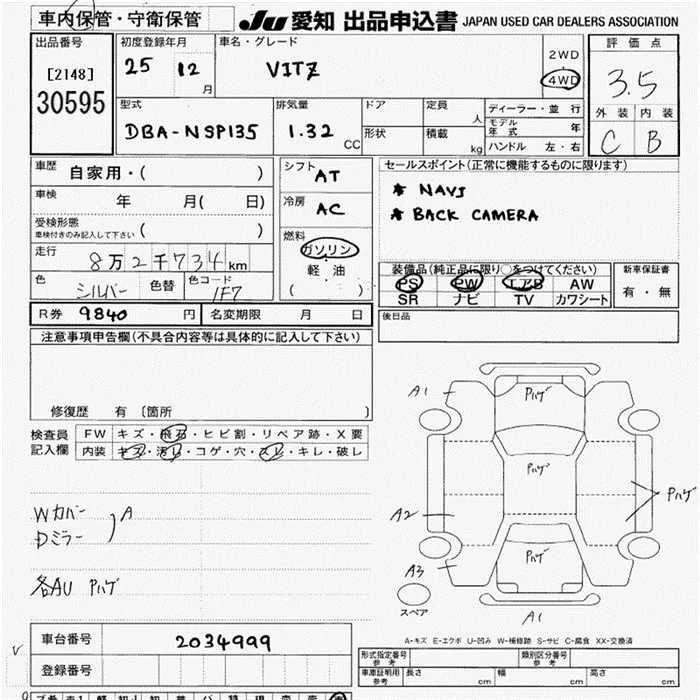 車内保管・守衛保管
JU 愛知 出品申込書 JAPAN USED CAR DEALERS ASSOCIATION
出品番号
[2148]
30595
初度登録年月
25 12 月
車名・グレード
VITZ
2WD
・
4WD
評価点
3.5
外装 内装
C B
型式
DBA-NSP135
排気量
1.32 CC
ドア
形状
定員 人
積載 kg
ディーラー・並行
モデル年式 年
ハンドル 左・右
車歴 自家用・( )
車検 年 月( 日)
受検形態
車検付きのみ記入して下さい ( )
走行
8万2千734km
色 シルバー 色替 色コード 1F7
シフト AT
冷房 AC
燃料
ガソリン
軽油
( )
セールスポイント(正常に機能するものに限ります)
* NAVI
* BACK CAMERA
装備品(純正品に限り○をつけてください)
PS PW エアB AW
SR ナビ TV カワシート
新車保証書
有・無
R券 9840 円 名変期限 月 日
後日品
注意事項申告欄(不具合内容等は具体的に記入して下さい)
修復歴 有〔箇所 〕
検査員記入欄
FW キズ・飛石・ヒビ割・リペア跡・X要
内装 キズ・汚レ・コゲ・穴・スレ・キレ・破レ
Wカバー
Dミラー
A
各AU Pハゲ
A1
Pハゲ
Pハゲ
Pハゲ
A2
Pハゲ
A3
スペア
A1
A-キズ E-エクボ U-凹み W-補修跡 S-サビ C-腐食 XX-交換済
車台番号 2034999
登録番号
V
形式指定番号 参考
類別区分番号 参考
車庫証明用 参考
長さ cm 幅 cm 高さ cm